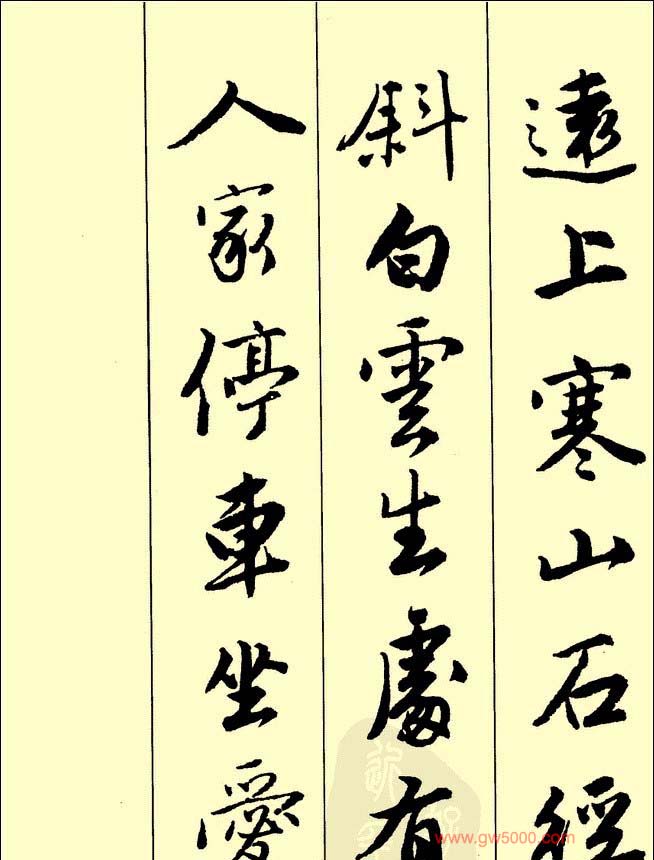 遠上寒山石徑
斜白雲生處有
人家停車坐愛
www.gw5000.com